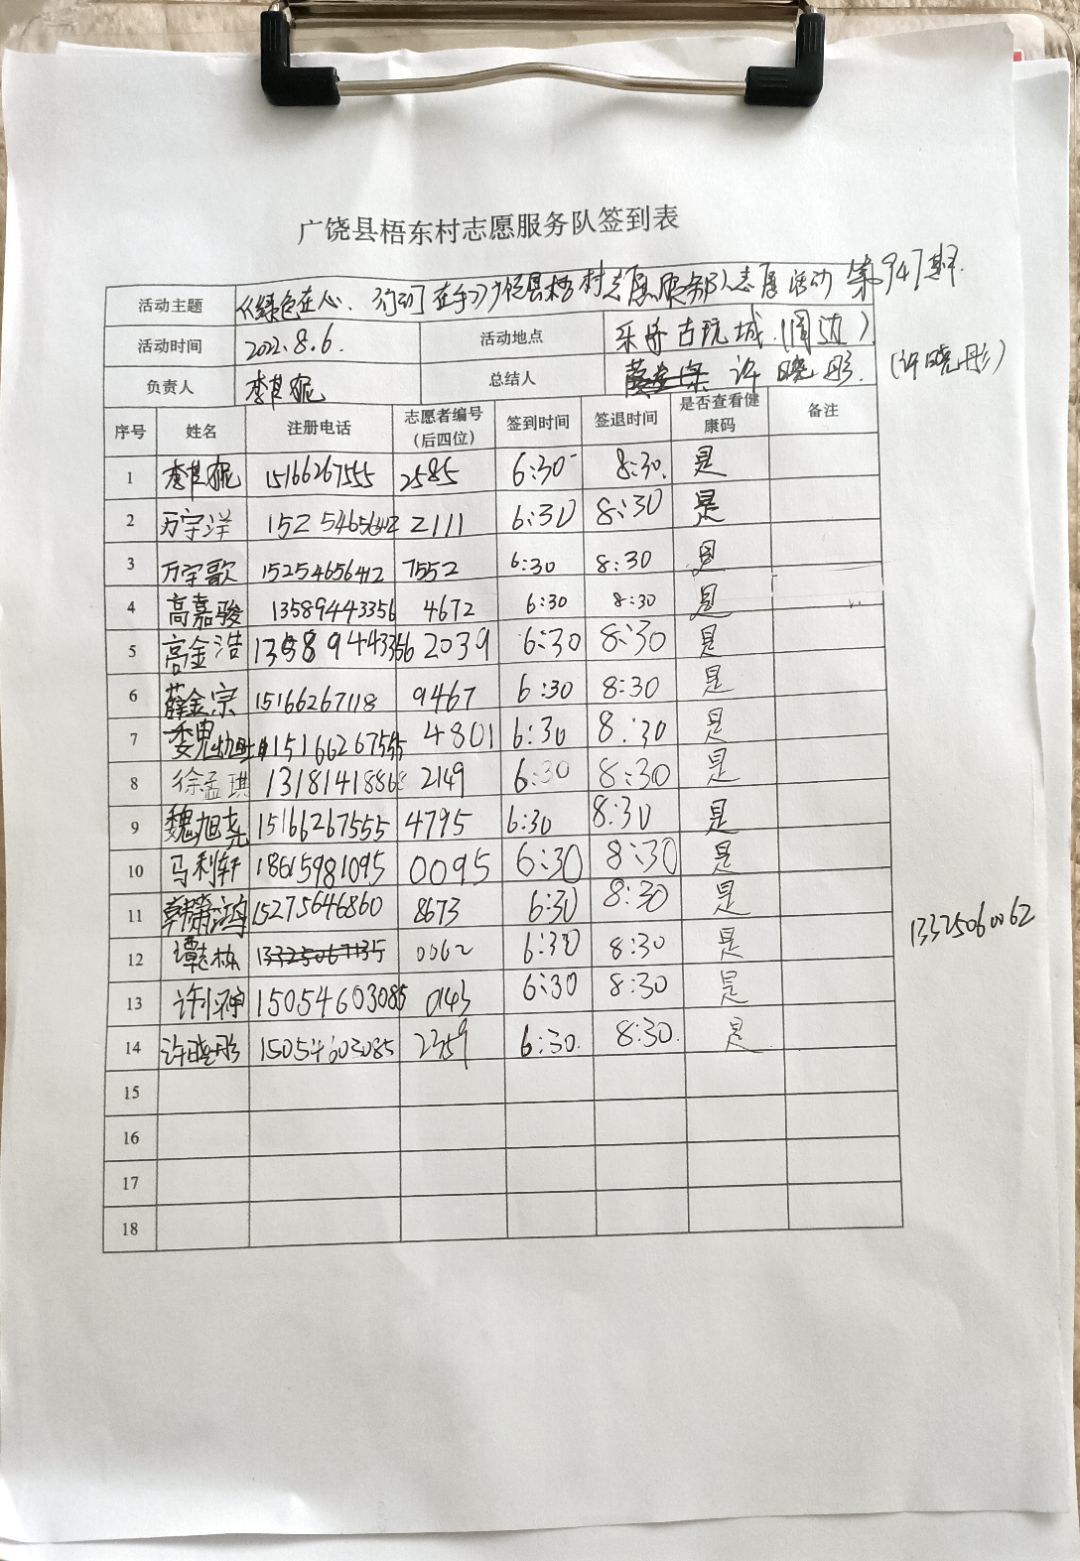 广饶县梧东村志愿服务队签到表
活动主题 《绿色在心、行动在手》广饶县梧村志愿服务队志愿活动 第947期.
活动时间 2022.8.6. 活动地点 乐安古玩城(周边)
负责人 李其妮 总结人 许晓彤. (许晓彤)
序号 姓名 注册电话 志愿者编号(后四位) 签到时间 签退时间 是否查看健康码 备注
1 李其妮 15166267555 2585 6:30 8:30. 是
2 万宇洋 2111 6:30 8:30 是
3 万宇歌 15254656412 7552 6:30 8:30 是
4 高嘉骏 13589443356 4672 6:30 8:30 是
5 高金浩 13589443356 2039 6:30 8:30 是
6 薛金宗 15166267118 9467 6:30 8:30 是
7 15166267555 4801 6:30 8:30 是
8 徐孟琪 13181418868 2149 6:30 8:30 是
9 魏旭尧 15166267555 4795 6:30 8:30 是
10 马利轩 18615981095 0095 6:30 8:30 是
11 韩萧鸿 15275646860 8673 6:30 8:30 是
12 谭栋 0062 6:30 8:30 是 13325060062
13 15054603085 0143 6:30 8:30 是
14 许晓彤 15054603085 2359 6:30. 8:30. 是
15
16
17
18